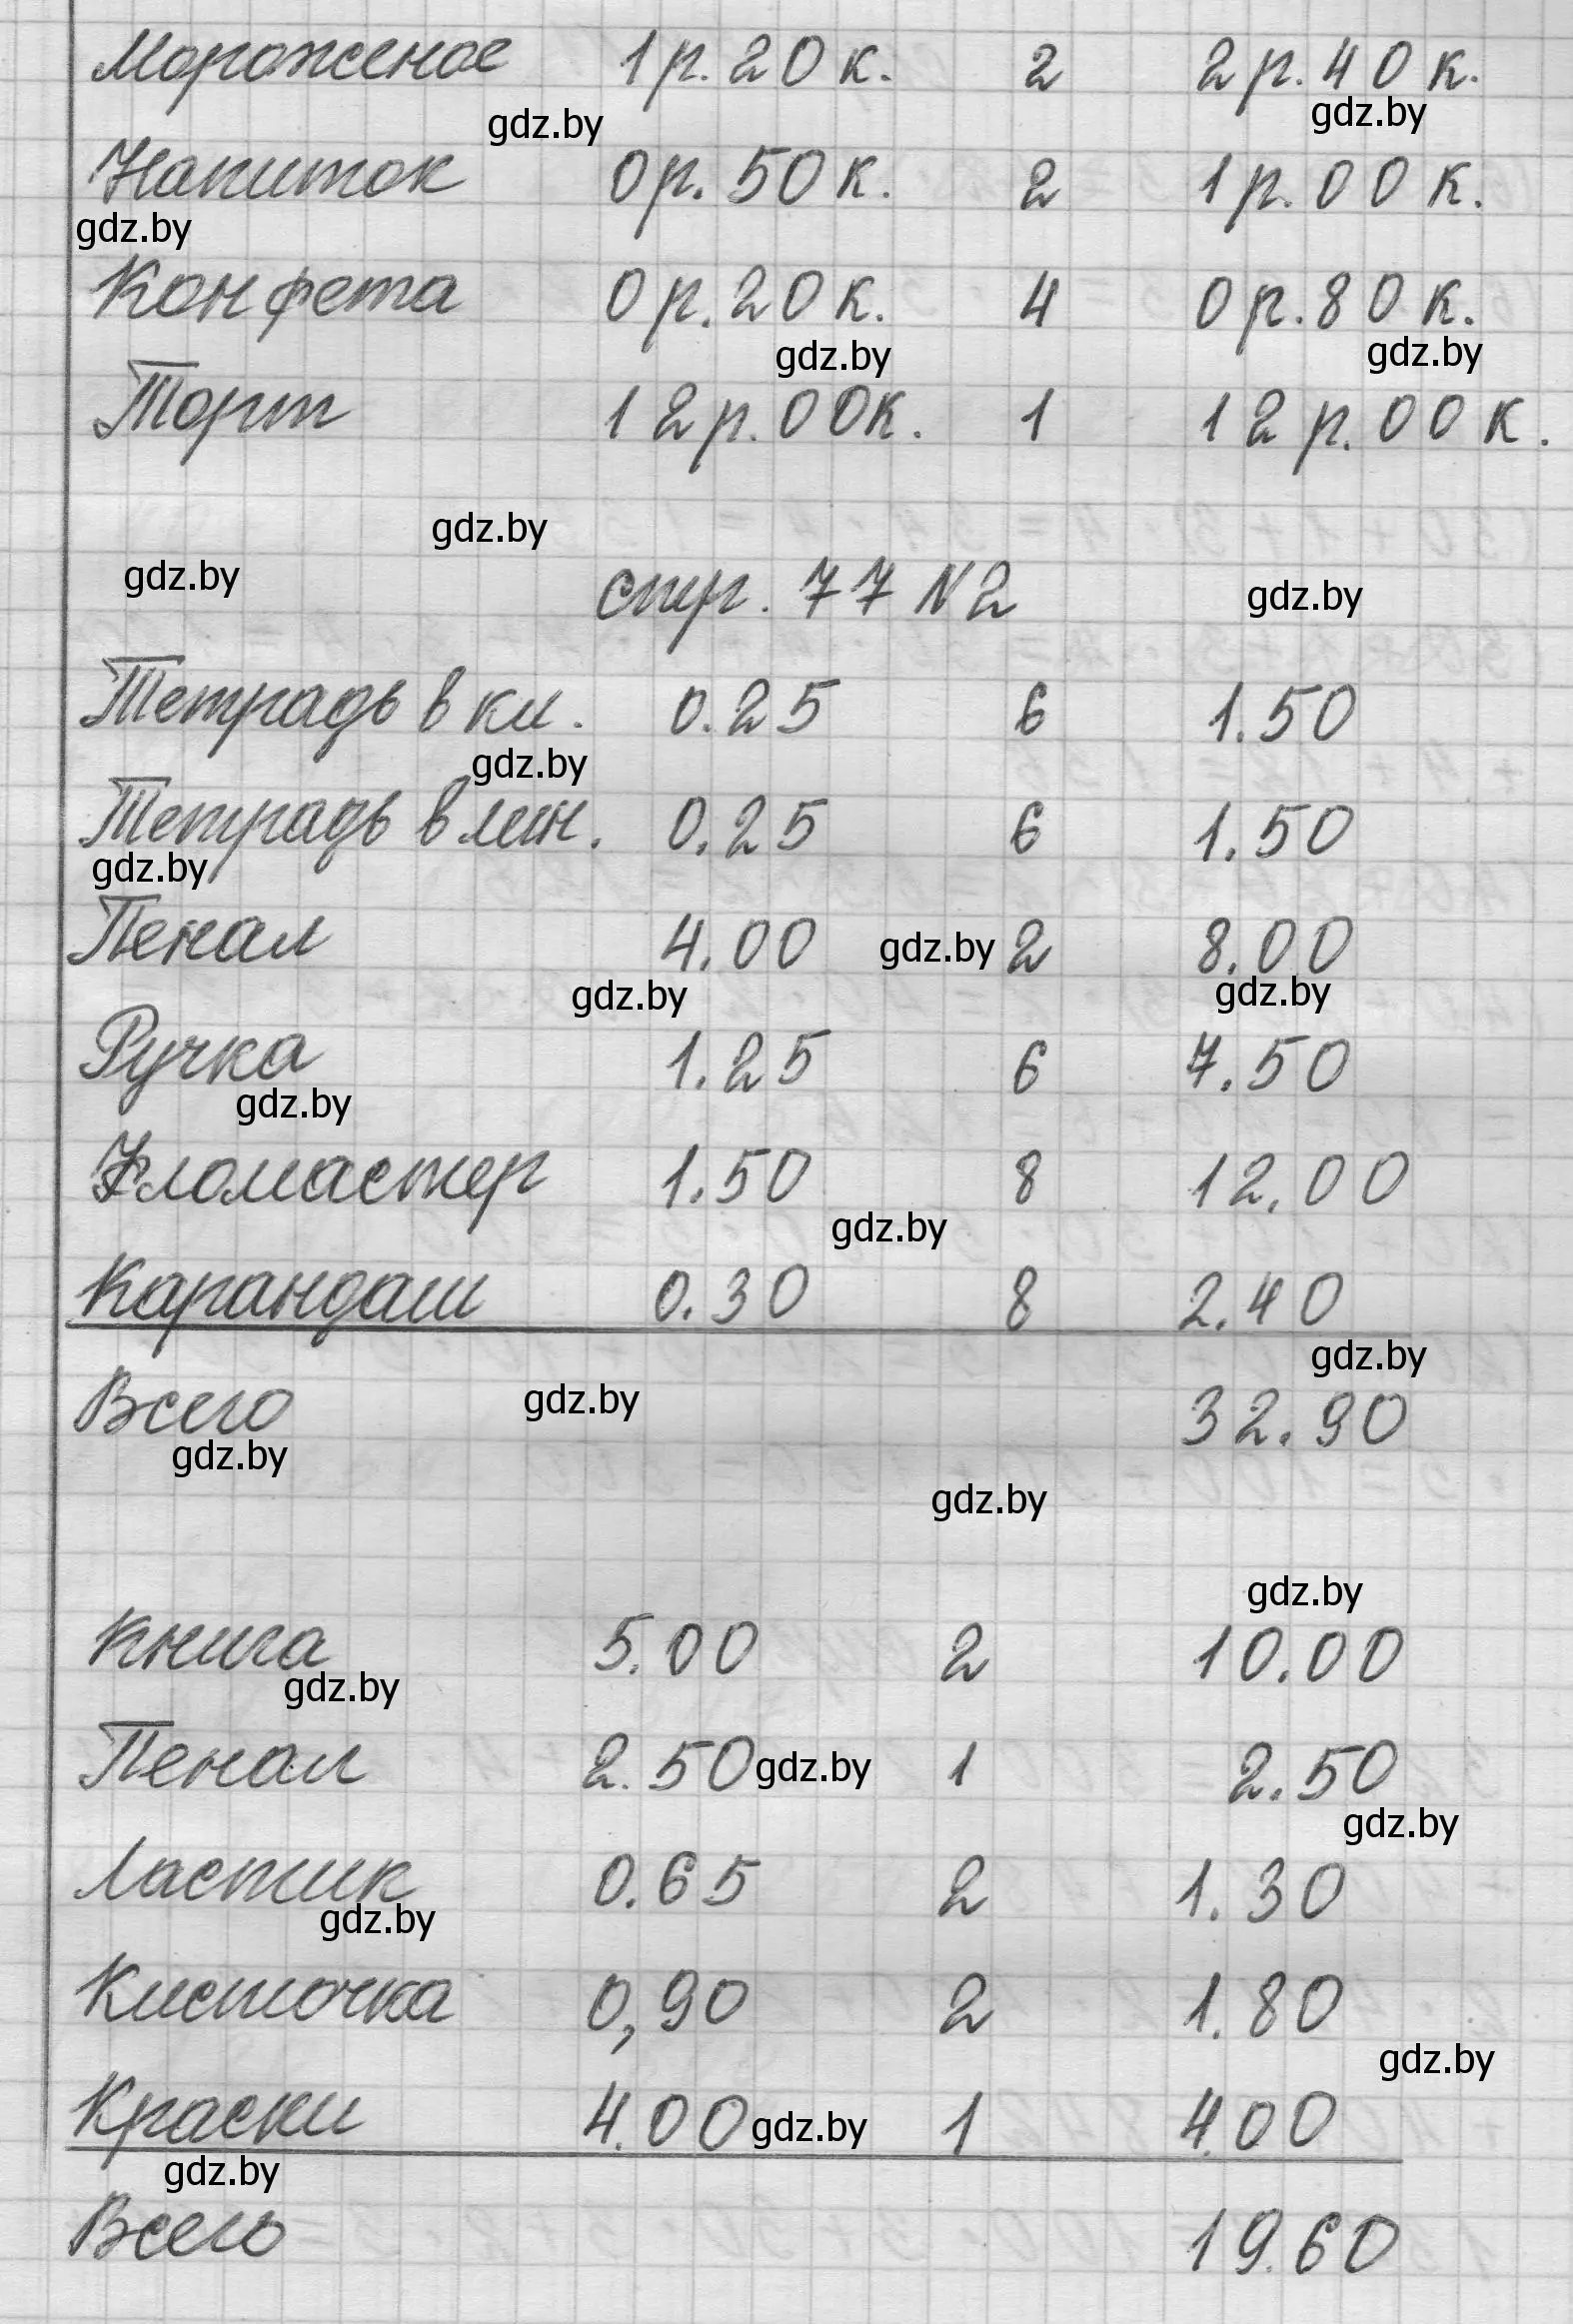 Мороженое 1р.20к. 2 2р.40к.
gdz.by gdz.by
Напиток 0р.50к. 2 1р.00к.
gdz.by
Конфета 0р.20к. 4 0р.80к.
gdz.by gdz.by
Торт 12р.00к. 1 12р.00к.
gdz.by
gdz.by стр. 77 N2 gdz.by
Тетрадь в кл. 0.25 6 1.50
gdz.by
Тетрадь в лин. 0.25 6 1.50
gdz.by
Пенал 4.00 gdz.by 2 8.00
gdz.by gdz.by
Ручка 1.25 6 7.50
gdz.by
Фломастер 1.50 8 12.00
gdz.by
Карандаш 0.30 8 2.40
gdz.by
Всего gdz.by 32.90
gdz.by
gdz.by
gdz.by
Книга 5.00 2 10.00
gdz.by
Пенал 2.50 gdz.by 1 2.50
gdz.by
Ластик 0.65 2 1.30
gdz.by
Кисточка 0,90 2 1.80
gdz.by
Краски 4.00 gdz.by 1 4.00
gdz.by
Всего 19.60